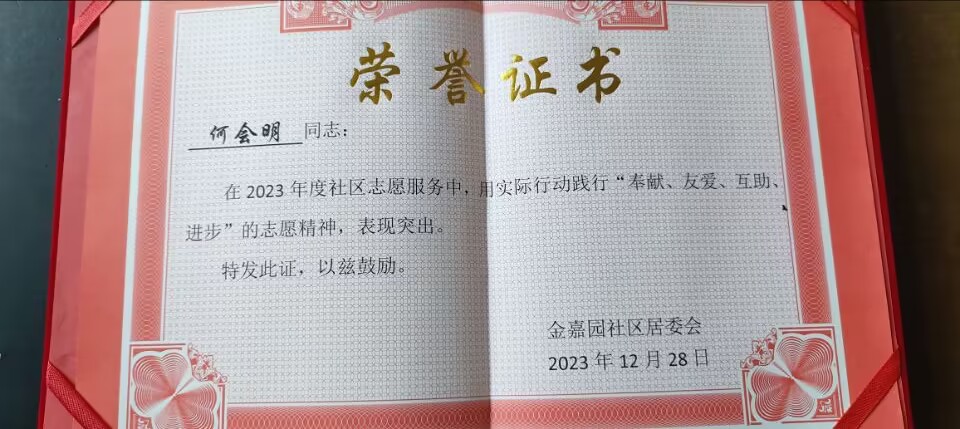 荣誉证书
何会明 同志：
在 2023 年度社区志愿服务中，用实际行动践行“奉献、友爱、互助、
进步”的志愿精神，表现突出。
特发此证，以兹鼓励。
金嘉园社区居委会
2023 年 12 月 28 日